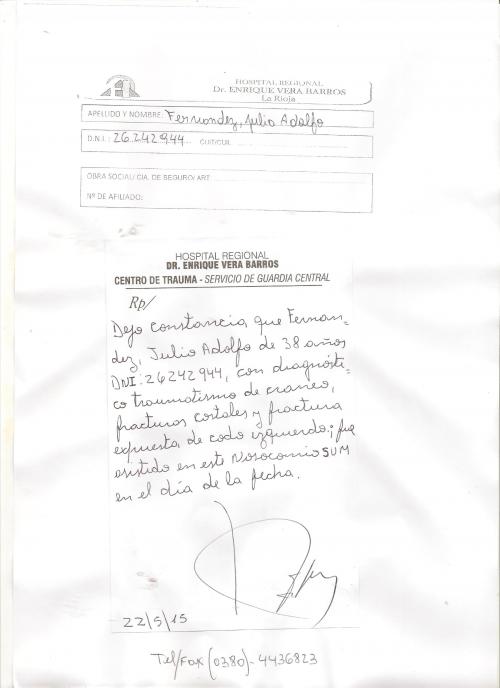 HOSPITAL REGIONAL
Dr. ENRIQUE VERA BARROS
La Rioja
APELLIDO Y NOMBRE: Fernandez, Julio Adolfo
D.N.I.: 26.242.944 CUIT/CUIL
OBRA SOCIAL/ CIA. DE SEGURO/ ART
Nº DE AFILIADO:
HOSPITAL REGIONAL
DR. ENRIQUE VERA BARROS
CENTRO DE TRAUMA - SERVICIO DE GUARDIA CENTRAL
Rp/
Dejo constancia que Fernan-
dez, Julio Adolfo de 38 años
DNI: 26242944, con diagnósti-
co traumatismo de craneo,
fracturas costales y fractura
expuesta de codo izquierdo; fue
asistido en este Nosocomio SUM
en el día de la fecha.
22/5/15
Tel/Fax (0380)-4436823